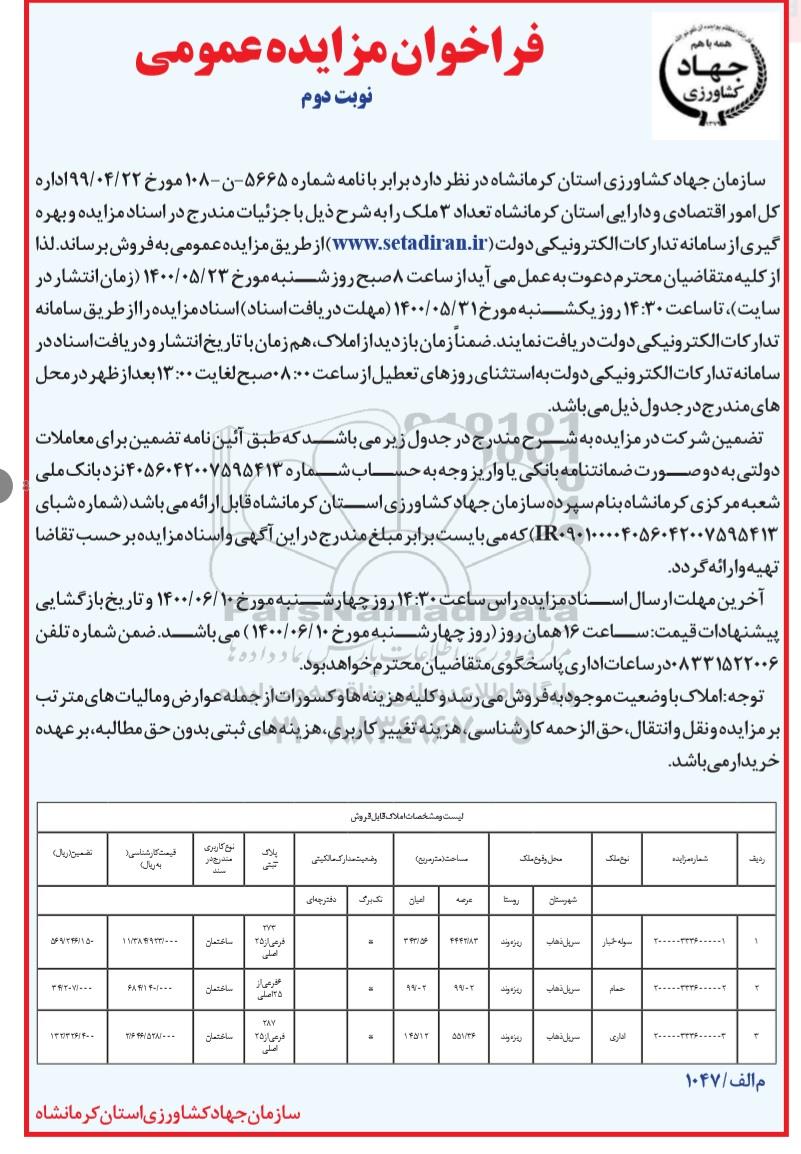 همه با هم
جهاد
کشاورزی
۱۳۷۹
فراخوان مزایده عمومی
نوبت دوم
سازمان جهاد کشاورزی استان کرمانشاه در نظر دارد برابر با نامه شماره ۵۶۶۵-ن-۱۰۸ مورخ ۹۹/۰۴/۲۲ اداره
کل امور اقتصادی و دارایی استان کرمانشاه تعداد ۳ ملک را به شرح ذیل با جزئیات مندرج در اسناد مزایده و بهره
گیری از سامانه تدارکات الکترونیکی دولت (www.setadiran.ir) از طریق مزایده عمومی به فروش برساند. لذا
از کلیه متقاضیان محترم دعوت به عمل می آید از ساعت ۸ صبح روز شنبه مورخ ۱۴۰۰/۰۵/۲۳ (زمان انتشار در
سایت)، تا ساعت ۱۴:۳۰ روز یکشنبه مورخ ۱۴۰۰/۰۵/۳۱ (مهلت دریافت اسناد) اسناد مزایده را از طریق سامانه
تدارکات الکترونیکی دولت دریافت نمایند. ضمناً زمان بازدید از املاک، هم زمان با تاریخ انتشار و دریافت اسناد در
سامانه تدارکات الکترونیکی دولت به استثنای روزهای تعطیل از ساعت ۰۸:۰۰ صبح لغایت ۱۳:۰۰ بعد از ظهر در محل
های مندرج در جدول ذیل می باشد.
تضمین شرکت در مزایده به شرح مندرج در جدول زیر می باشد که طبق آئین نامه تضمین برای معاملات
دولتی به دو صورت ضمانتنامه بانکی یا واریز وجه به حساب شماره ۴۰۵۶۰۴۲۰۰۷۵۹۵۴۱۳ نزد بانک ملی
شعبه مرکزی کرمانشاه بنام سپرده سازمان جهاد کشاورزی استان کرمانشاه قابل ارائه می باشد (شماره شبای
IR۰۹۰۱۰۰۰۰۴۰۵۶۰۴۲۰۰۷۵۹۵۴۱۳) که می بایست برابر مبلغ مندرج در این آگهی و اسناد مزایده بر حسب تقاضا
تهیه و ارائه گردد.
آخرین مهلت ارسال اسناد مزایده راس ساعت ۱۴:۳۰ روز چهارشنبه مورخ ۱۴۰۰/۰۶/۱۰ و تاریخ بازگشایی
پیشنهادات قیمت: ساعت ۱۶ همان روز (روز چهارشنبه مورخ ۱۴۰۰/۰۶/۱۰) می باشد. ضمن شماره تلفن
۰۸۳۳۱۵۲۲۰۰۶ در ساعات اداری پاسخگوی متقاضیان محترم خواهد بود.
توجه: املاک با وضعیت موجود به فروش می رسد و کلیه هزینه ها و کسورات از جمله عوارض و مالیات های مترتب
بر مزایده و نقل و انتقال، حق الزحمه کارشناسی، هزینه تغییر کاربری، هزینه های ثبتی بدون حق مطالبه، بر عهده
خریدار می باشد.
ParsNamadData
لیست و مشخصات املاک قابل فروش
ردیف شماره مزایده نوع ملک محل وقوع ملک مساحت (متر مربع) وضعیت مدارک مالکیتی پلاک ثبتی نوع کاربری مندرج در سند قیمت کارشناسی (به ریال) تضمین (ریال)
شهرستان روستا عرصه اعیان تک برگ دفترچه ای
۱ ۲۰۰۰۰۰۳۳۳۶۰۰۰۰۰۱ سوله انبار سرپل ذهاب ریزه وند ۴۴۴۲/۸۳ ۳۴۳/۵۶ * ۲۷۳ فرعی از ۲۵ اصلی ساختمان ۱۱/۳۸۴/۹۲۳/۰۰۰ ۵۶۹/۲۴۶/۱۵۰
۲ ۲۰۰۰۰۰۳۳۳۶۰۰۰۰۰۲ حمام سرپل ذهاب ریزه وند ۹۹/۰۲ ۹۹/۰۲ * ۶ فرعی از ۲۵ اصلی ساختمان ۶۸۴/۱۴۰/۰۰۰ ۳۴/۲۰۷/۰۰۰
۳ ۲۰۰۰۰۰۳۳۳۶۰۰۰۰۰۳ اداری سرپل ذهاب ریزه وند ۵۵۱/۳۶ ۱۴۵/۱۲ * ۲۸۷ فرعی از ۲۵ اصلی ساختمان ۲/۶۴۶/۵۲۸/۰۰۰ ۱۳۲/۳۲۶/۴۰۰
م الف/۱۰۴۷
سازمان جهاد کشاورزی استان کرمانشاه